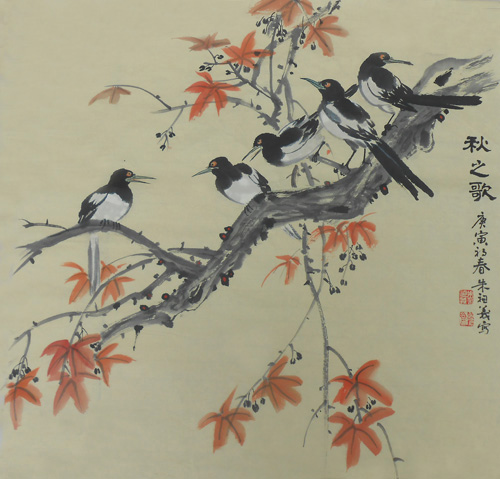 秋之歌
庚寅初春朱祖义写